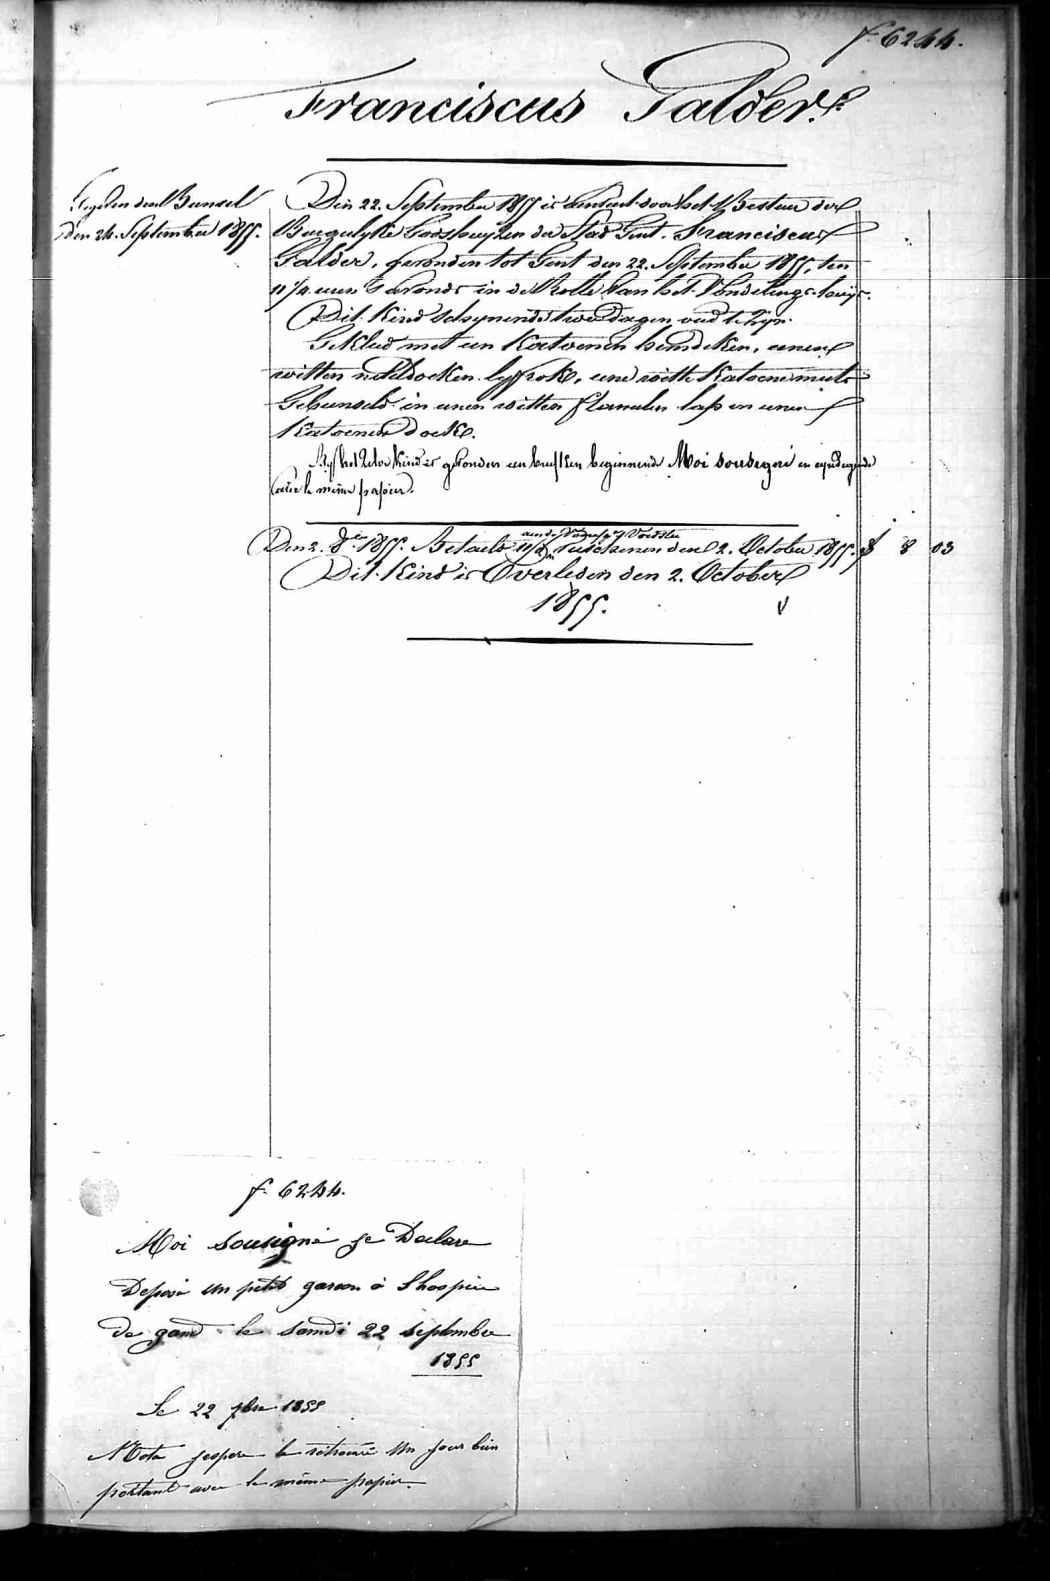 f. 6244.
Franciscus Galder.
den Bunsel
den 24. September 1855.
Den 22. September 1855 is door het Bestuur der
Burgerlyke Godshuyzen der Stad Gent. Franciscus
Galder, gevonden tot Gent den 22. September 1855, ten
11 1/4 uren s'avonds in de Rolle van het Vondelings-huys.
Dit Kind schynende twee dagen oud te zyn.
Gekleed met een Katoenen hemdeken, eenen
witten neteldoeken lyfrok, eene witte Katoene muts
Gebunseld in eenen witten flanelen lap en eenen
Katoenen doek.
By het Kind is gevonden een briefken beginnende Moi sousigné en eyndigende
avec le même papier.
Den 2. 8bre 1855. Betaeld tusschenen den 2. October 1855. f 8 03
Dit Kind is Overleden den 2. October
1855.
f. 6244.
Moi sousigné je Declare
Deposé un petit garcon à Lhospice
de gand le samdi 22 septembre
1855
Le 22 7bre 1855
Nota jespere le retrouvé un jour bien
portant avec le même papier.